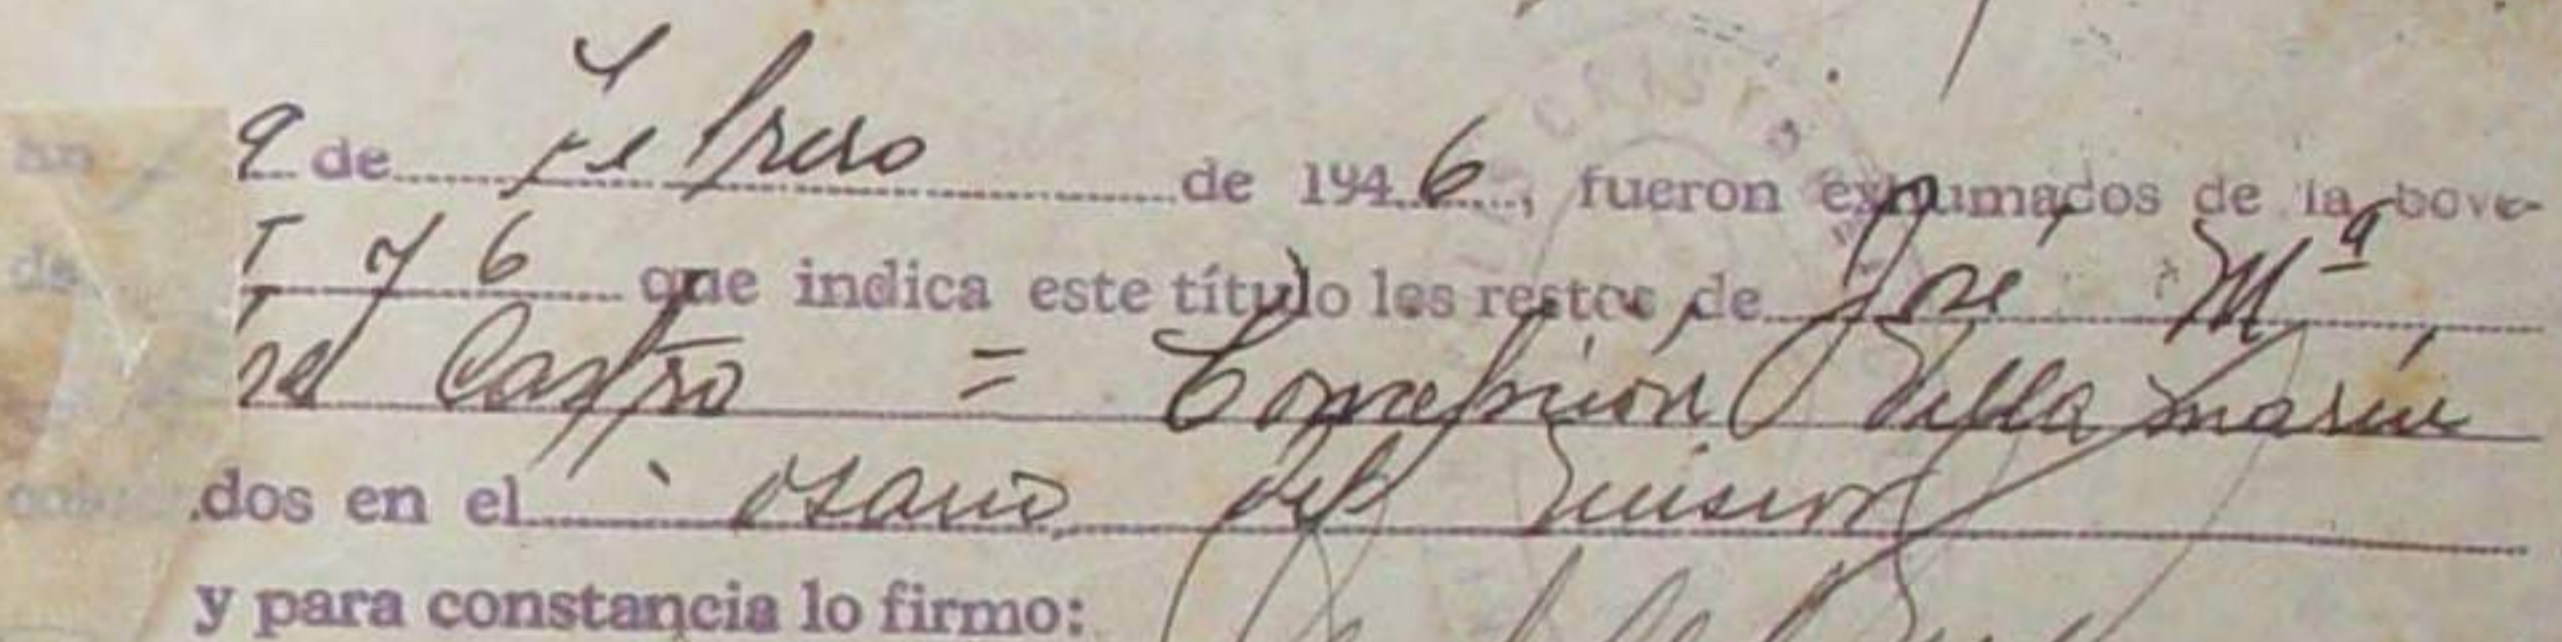 9 de Febrero de 1946, fueron exhumados de la bove-
de 1 76 que indica este título los restos de José Mª
Castro = Concepción Villamarín
dos en el osario del
y para constancia lo firmo: